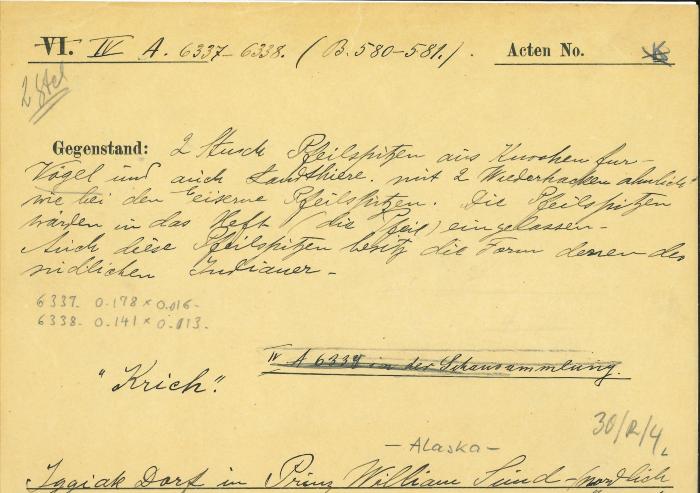 VI. IV A. 6337-6338. (B. 580-581.). Acten No.
2 Stck
Gegenstand: 2 Stück Pfeilspitzen aus Knochen fur-
Vögel und auch Landthiere. mit 2 Wiederhacken ähnlich
wie bei den Eiserne Pfeilspitzen. Die Pfeilspitzen
wärden in das Heft (die Pfeil) eingelassen-
Auch diese Pfeilspitzen besitz die Form denen des
südlichen Indianer-
6337. 0.178 x 0.016-
6338. 0.141 x 0.013.
IV A 6339 in der Schausammlung.
"Krich".
30/R/4.
-Alaska-
Iggiak Dorf in Prinz William Sund-(nordlich